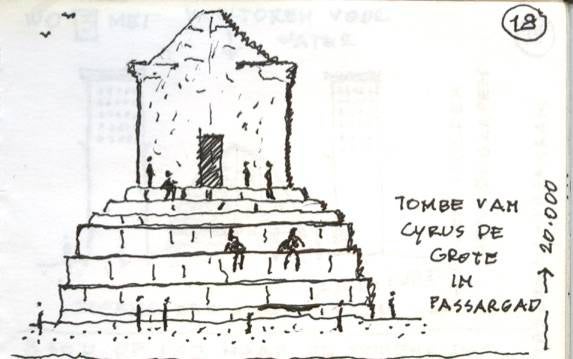 18
TOMBE VAN
CYRUS DE
GROTE
IN
PASSARGAD
→ 20.000